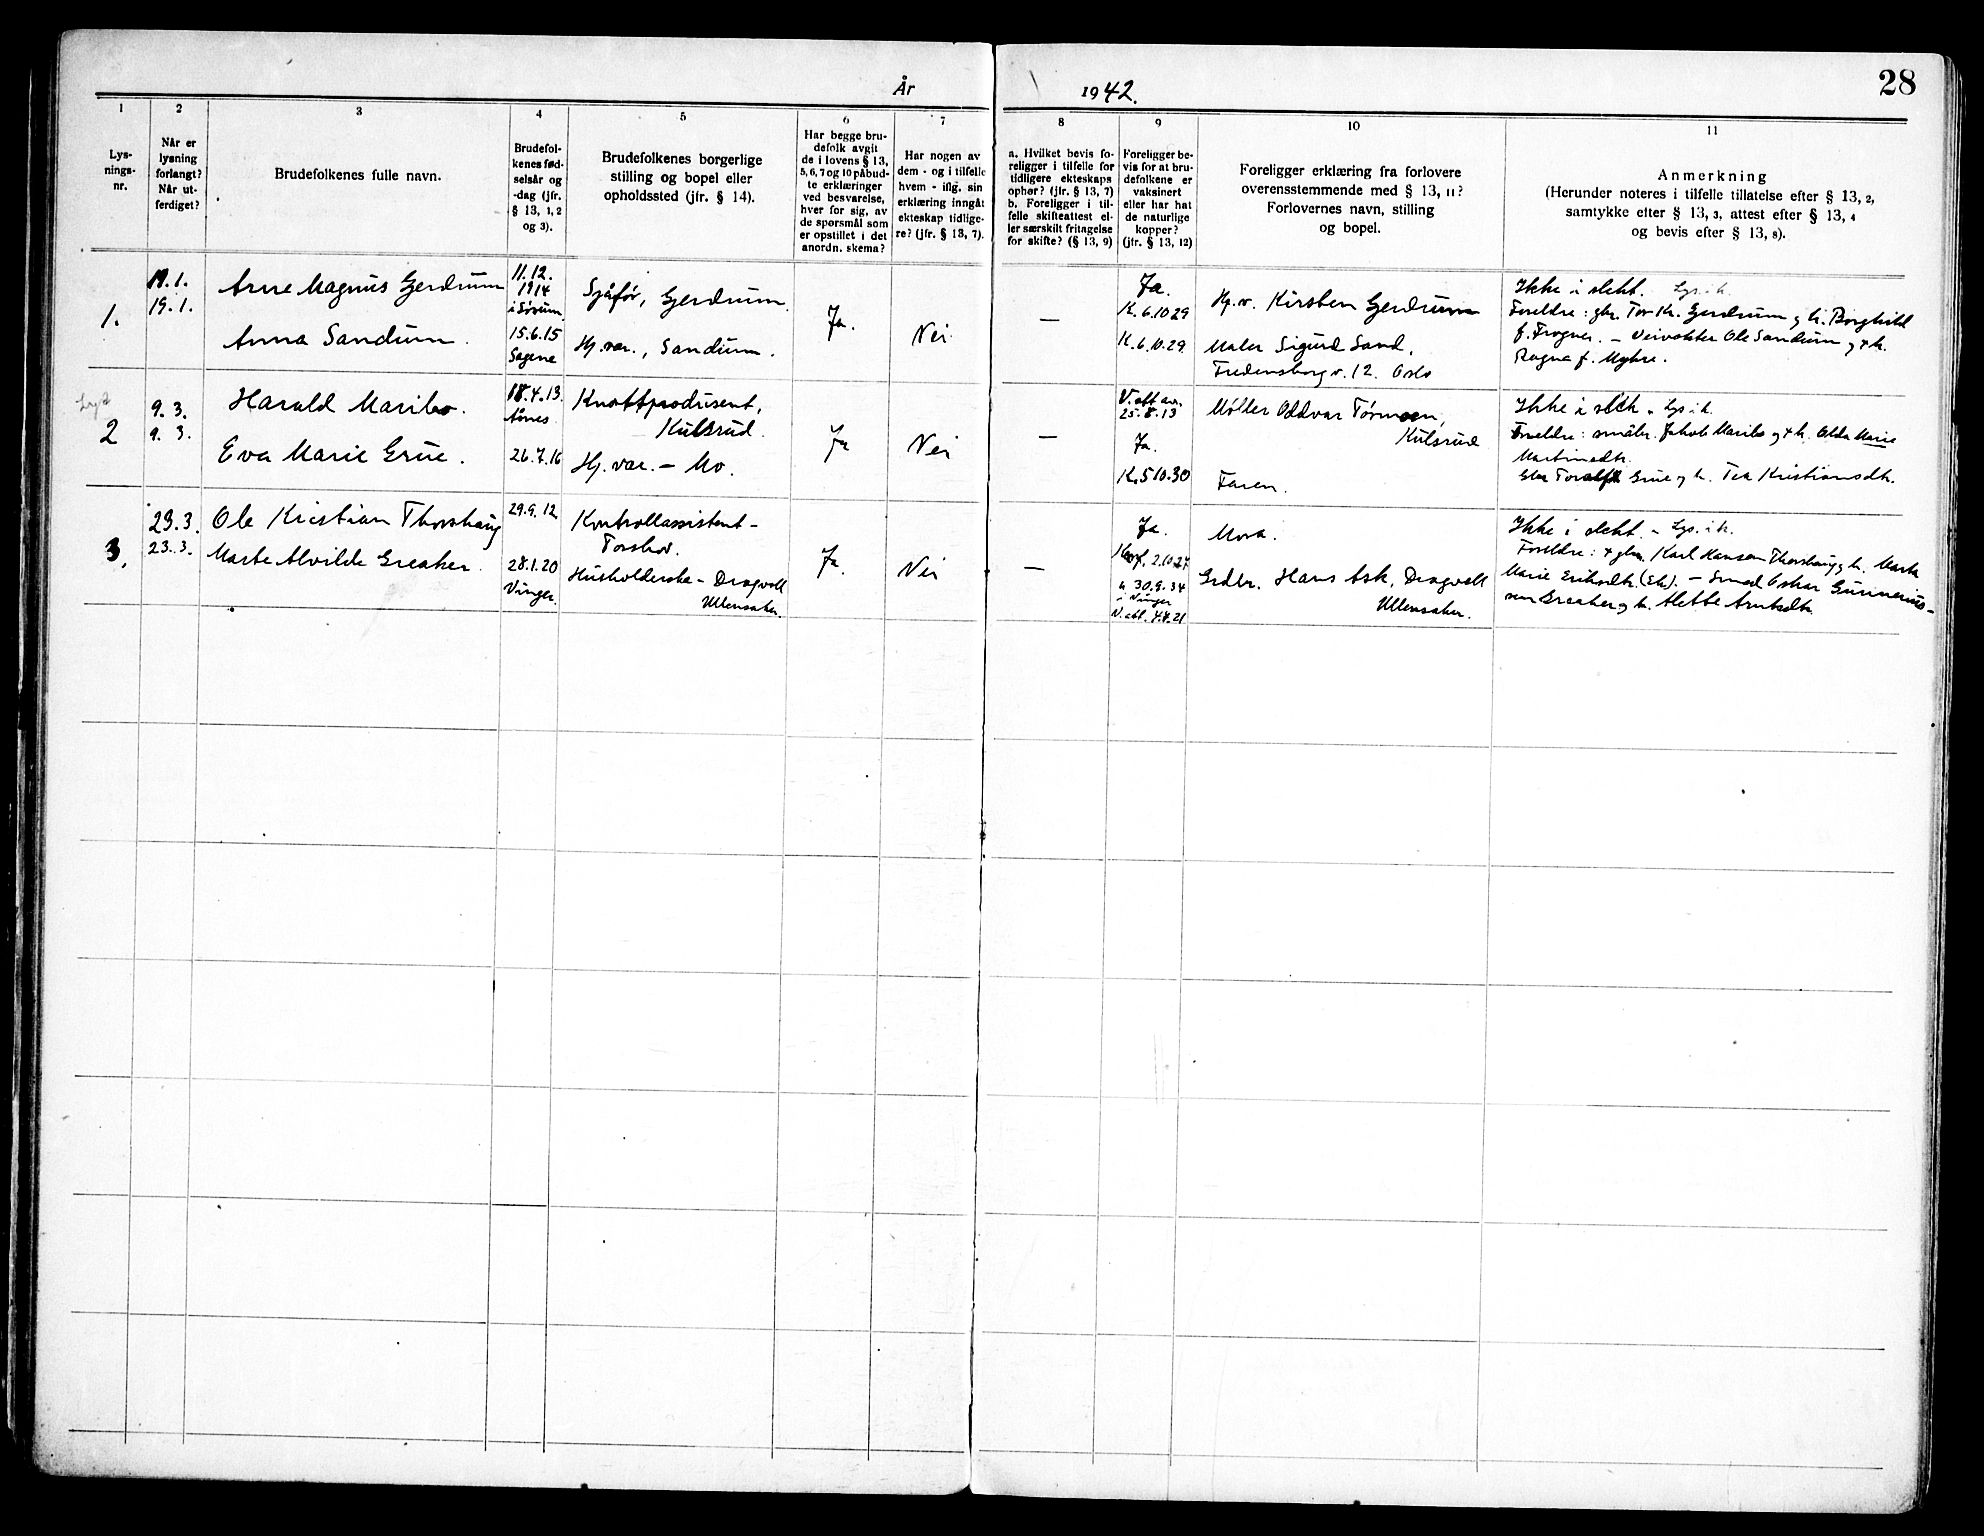 28
År 1942.
1 2 3 4 5 6 7 8 9 10 11
Lys-
nings-
nr.
Når er
lysning
forlangt?
Når ut-
ferdiget?
Brudefolkenes fulle navn.
Brudefol-
kenes fød-
selsår og
-dag (jfr.
§ 13, 1, 2
og 3).
Brudefolkenes borgerlige
stilling og bopel eller
opholdssted (jfr. § 14).
Har begge bru-
defolk avgit
de i lovens § 13,
5, 6, 7 og 10 påbud-
te erklæringer
ved besvarelse,
hver for sig, av
de spørsmål som
er opstillet i det
anordn. skema?
Har nogen av
dem - og i tilfelle
hvem - iflg. sin
erklæring inngåt
ekteskap tidlige-
re? (jfr. § 13, 7).
a. Hvilket bevis fo-
religger i tilfelle for
tidligere ekteskaps
ophør? (jfr. § 13, 7)
b. Foreligger i til-
felle skifteattest el-
ler særskilt fritagelse
for skifte? (§ 13, 9)
Foreligger be-
vis for at bru-
defolkene er
vaksinert
eller har hat
de naturlige
kopper?
(jfr. § 13, 12)
Foreligger erklæring fra forlovere
overensstemmende med § 13, 11?
Forlovernes navn, stilling
og bopel.
Anmerkning
(Herunder noteres i tilfelle tillatelse efter § 13, 2,
samtykke efter § 13, 3, attest efter § 13, 4
og bevis efter § 13, 8).
1.
19.1.
19.1.
Arne Magnus Gjerdrum
Anna Sandum.
11.12.
1914
i Sørum.
15.6.15
Sagene
Sjåfør, Gjerdrum.
Hj.vær., Sandum.
Ja.
Nei
—
Ja.
K. 6.10 29
K. 6.10.29
Hj.v. Kirsten Gjerdrum
Maler Sigurd Sand,
Fredensborgv. 12. Oslo
Ikke i slekt. Lys. i k.
Foreldre: gbr. Tor Kr. Gjerdrum og h. Borghild
f. Frogner. – Veivokter Ole Sandum og + h.
Ragna f. Myhre.
Lyst
2
9.3.
9.3.
Harald Maribo.
Eva Marie Grue.
18.4.13.
Årnes
26.7.16
Knottprodusent,
Kulsrud.
Hj.vær. – Mo.
Ja
Nei
—
V. att av.
25.8.13
Ja.
K. 5 10.30
Møller Oddvar Tørmoen,
Kulsrud
Faren.
Ikke i slekt – Lys. i k.
Foreldre: småbr. Jakob Maribo og + h. Alda Marie
Martinsdtr.
Gbr Toralf Grue og h. Tea Kristiansdtr.
3.
23.3.
23.3.
Ole Kristian Thorshaug
Marte Alvilde Greaker.
29.9.12
28.1.20
Vinger.
Kontrollassistent –
Torshov.
Husholderske – Dragvoll
Ullensaker.
Ja.
Nei
—
Ja
Konf. 2.10 27
K 30.9.34
i Vinger
V. att. 4.4.21
Mora.
Grdbr. Hans Ask, Dragvoll
Ullensaker.
Ikke i slekt. – Lys. i k.
Foreldre: + gbr. Karl Hansen Thorshaug og h. Marta
Marie Eriksdtr. (Ek). – Smed Oskar Gunnerius-
sen Greaker og h. Alette Arntsdtr.